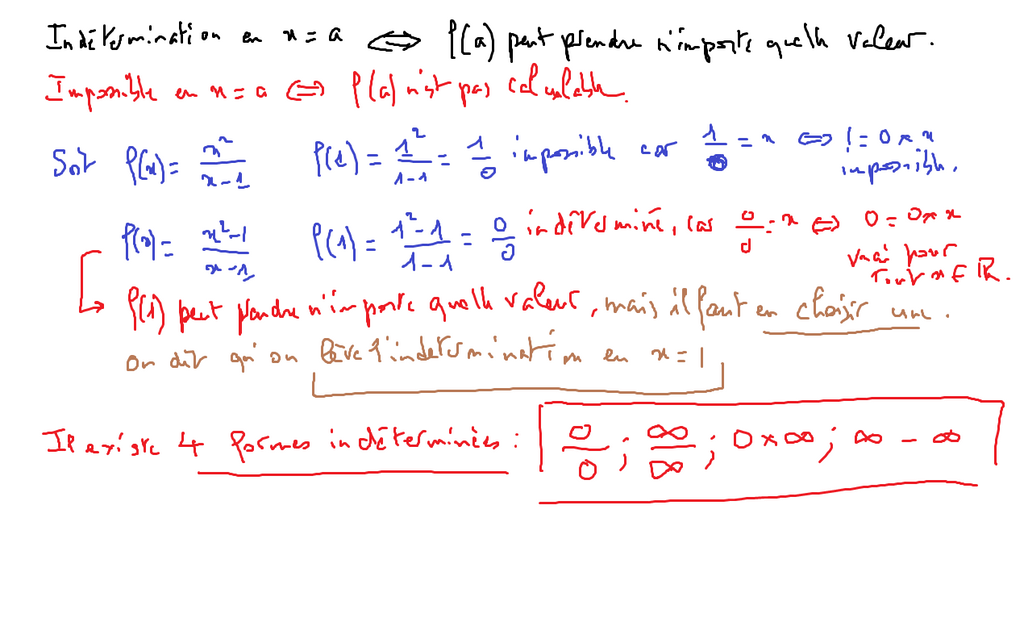 Indétermination en x = a ⟺ f(a) peut prendre n'importe quelle valeur.
Impossible en x = a ⟺ f(a) n'est pas calculable.
Soit f(x) = x²/(x-1) f(1) = 1²/(1-1) = 1/0 impossible car 1/0 = x ⟺ 1 = 0 × x impossible.
f(x) = (x²-1)/(x-1) f(1) = (1²-1)/(1-1) = 0/0 indéterminé, car 0/0 = x ⟺ 0 = 0 × x
vrai pour
tout x ∈ ℝ.
↳ f(1) peut prendre n'importe quelle valeur, mais il faut en choisir une.
on dit qu'on lève l'indetermination en x = 1
Il existe 4 formes indéterminées : 0/0 ; ∞/∞ ; 0 × ∞ ; ∞ - ∞